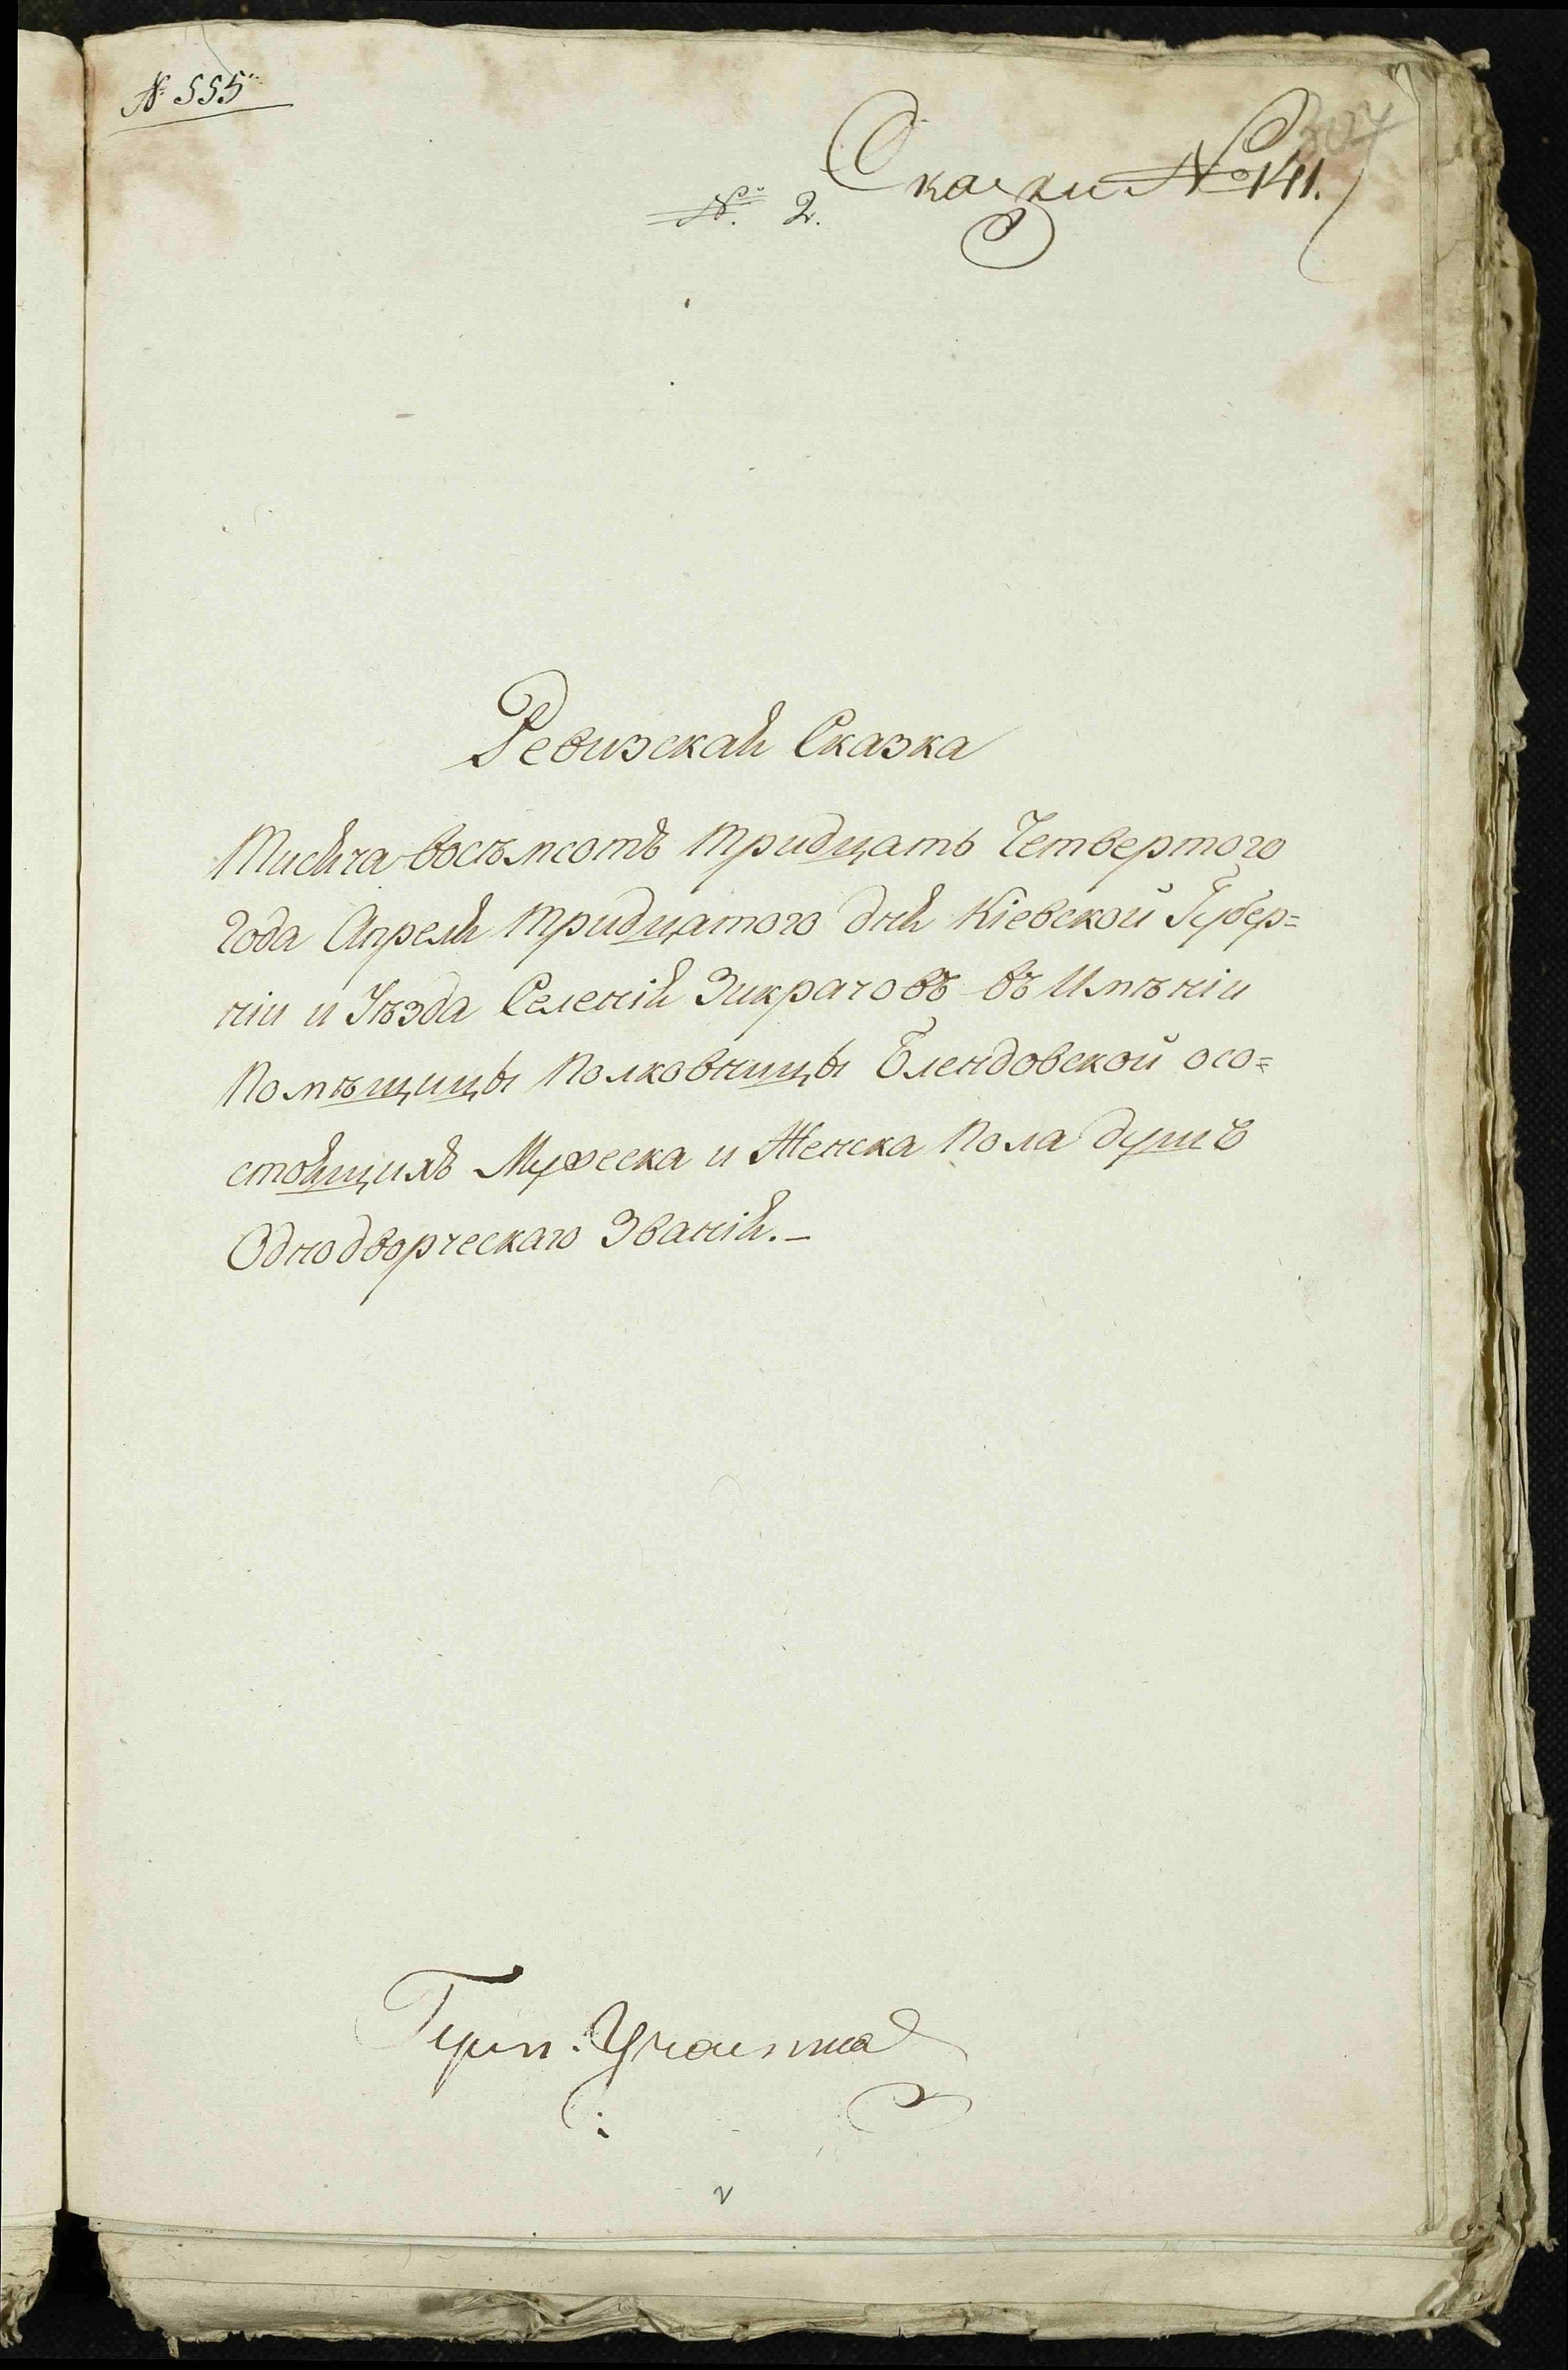 № 555
307
Сказки № 141.
№ 2.
Ревизская Сказка
Тисяча восѣмсотъ тридцать Четвертого
года Апреля тридцатого дня Кіевской Губер=
ніи и Уѣзда Селенія Зикрачовъ въ Имѣніи
Помѣщицы Полковницы Блендовской осо=
стоящихъ Мужеска и Женска Пола душъ
Однодворческаго Званія. —